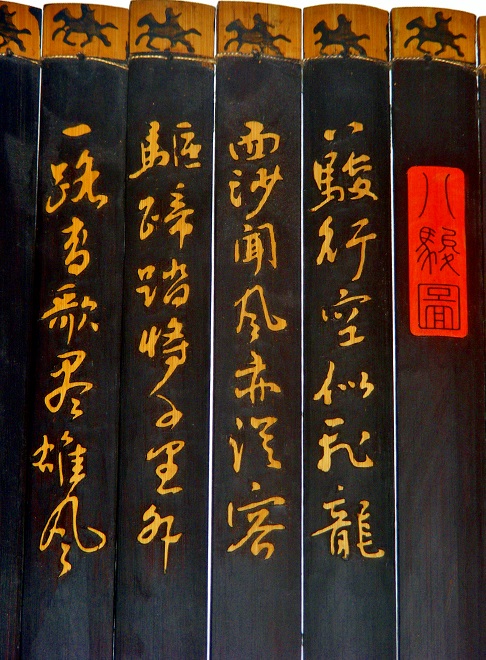 八駿圖
八駿行空似飛龍
西沙聞風赤從容
驅蹄踏特千里外
一路高歌尽雄風